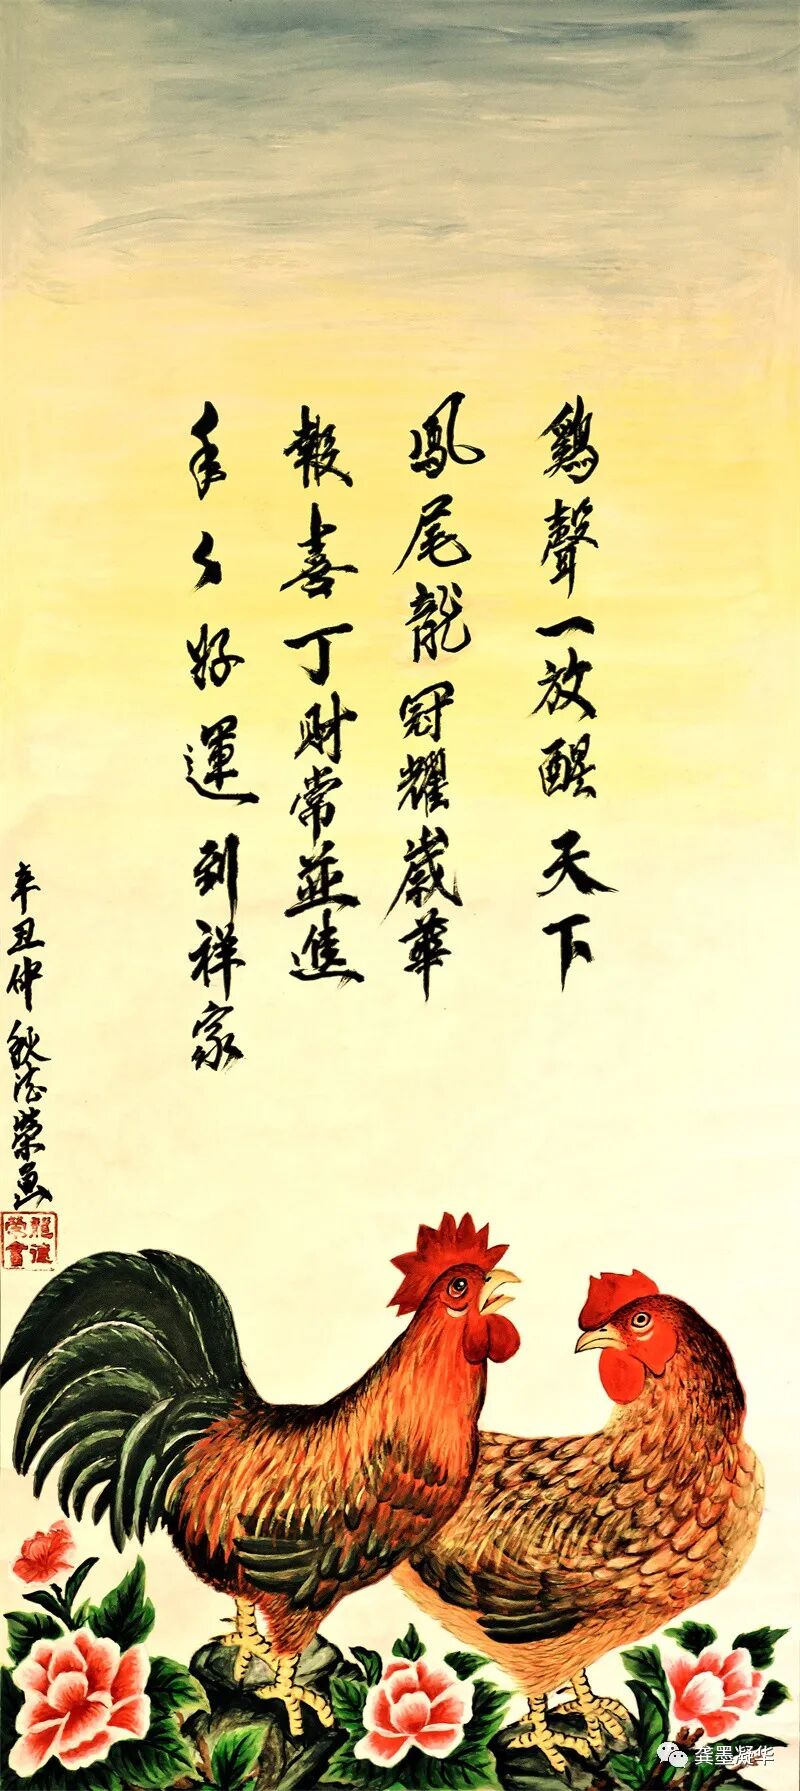 鷄聲一放醒天下
鳳尾龍冠耀歲華
報喜丁財常並進
年年好運到祥家
辛丑仲秋德榮画
龍德榮書
龚墨凝华